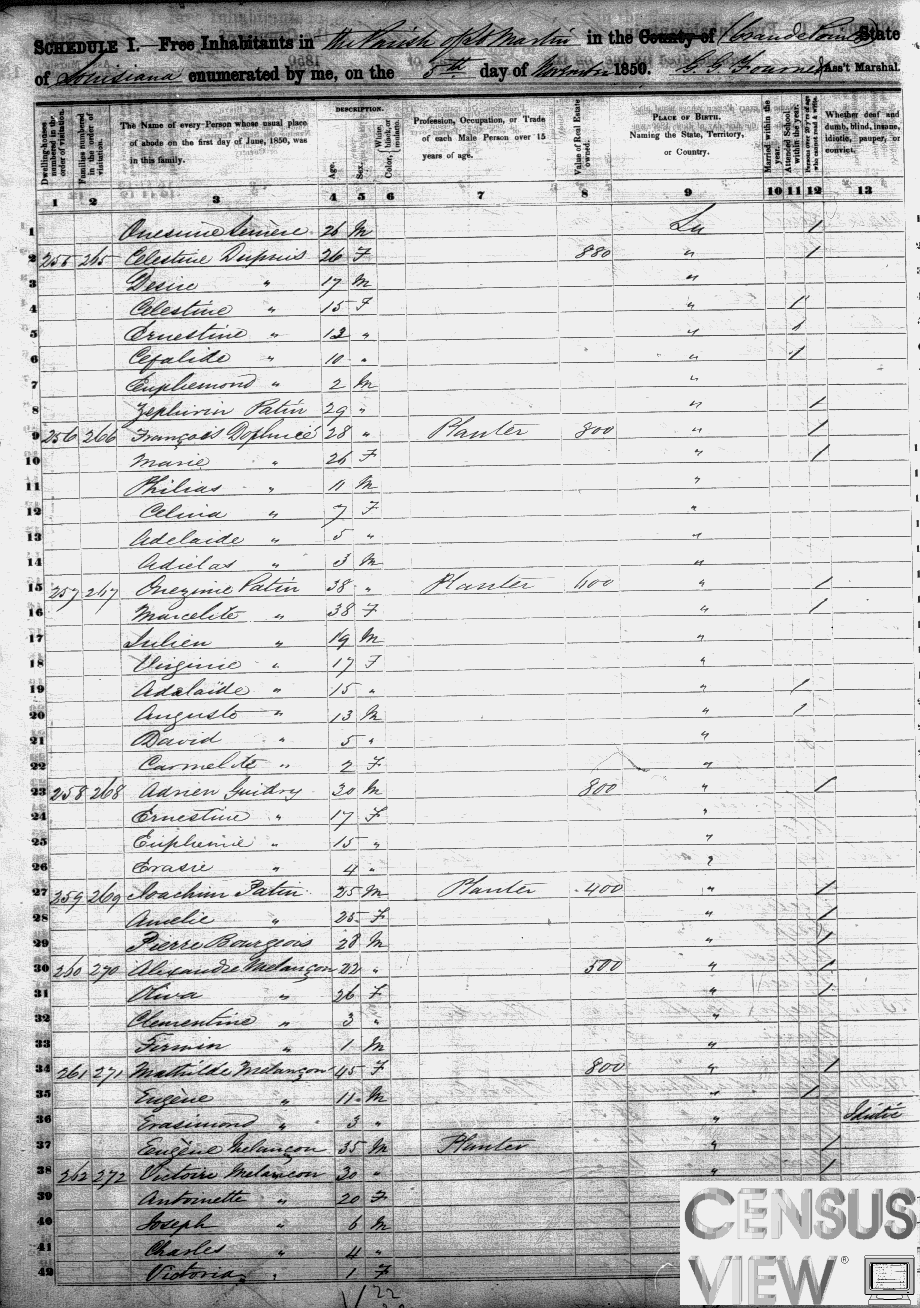 SCHEDULE I.—Free Inhabitants in the Parish of St Martin in the County of (Grande Pointe) State
of Louisiana enumerated by me, on the 5th day of November 1850. Ass't Marshal.
Dwelling-houses numbered in the order of visitation.
Families numbered in the order of visitation.
The Name of every Person whose usual place of abode on the first day of June, 1850, was in this family.
DESCRIPTION.
Age.
Sex.
Color, White, black, or mulatto.
Profession, Occupation, or Trade of each Male Person over 15 years of age.
Value of Real Estate owned.
PLACE OF BIRTH. Naming the State, Territory, or Country.
Married within the year.
Attended School within the year.
Persons over 20 y'rs of age who cannot read & write.
Whether deaf and dumb, blind, insane, idiotic, pauper, or convict.
1 2 3 4 5 6 7 8 9 10 11 12 13
1 Onesime 26 M La 1
2 255 265 Celestine Dupuis 26 F 880 " 1
3 Desire " 17 M "
4 Celestine " 15 F " 1
5 Ernestine " 12 " " 1
6 Cefalide " 10 " " 1
7 Euphemond " 2 M "
8 Zephirin Patin 29 " " 1
9 256 266 François 28 " Planter 800 " 1
10 Marie " 26 F " 1
11 Philias " 11 M "
12 Celina " 7 F "
13 Adelaide " 5 " "
14 Adielas " 3 M "
15 257 267 Onezime Patin 38 " Planter 400 " 1
16 Marcelite " 38 F " 1
17 Julien " 19 M "
18 Virginie " 17 F "
19 Adelaïde " 15 " " 1
20 Auguste " 13 M " 1
21 David " 5 " "
22 Carmelite " 2 F "
23 258 268 Adrien Guidry 30 M 800 " 1
24 Ernestine " 17 F "
25 Euphemie " 15 " "
26 Erasie " 4 " "
27 259 269 Joachim Patin 25 M Planter 400 " 1
28 Amelie " 25 F " 1
29 Pierre Bourgeois 28 M " 1
30 260 270 Alexandre Melançon 22 " 500 " 1
31 Oliva " 26 F " 1
32 Clementine " 3 " "
33 Firmin " 1 M "
34 261 271 Mathilde Melançon 45 F 800 " 1
35 Eugène " 11 M " 1
36 Erasimond " 3 " "
37 Eugène Melançon 35 M Planter " 1
38 262 272 Victoire Melançon 30 " " 1
39 Antoinette " 20 F
40 Joseph " 6 M
41 Charles " 4 "
42 Victoria " 1 F
22
CENSUS
VIEW®